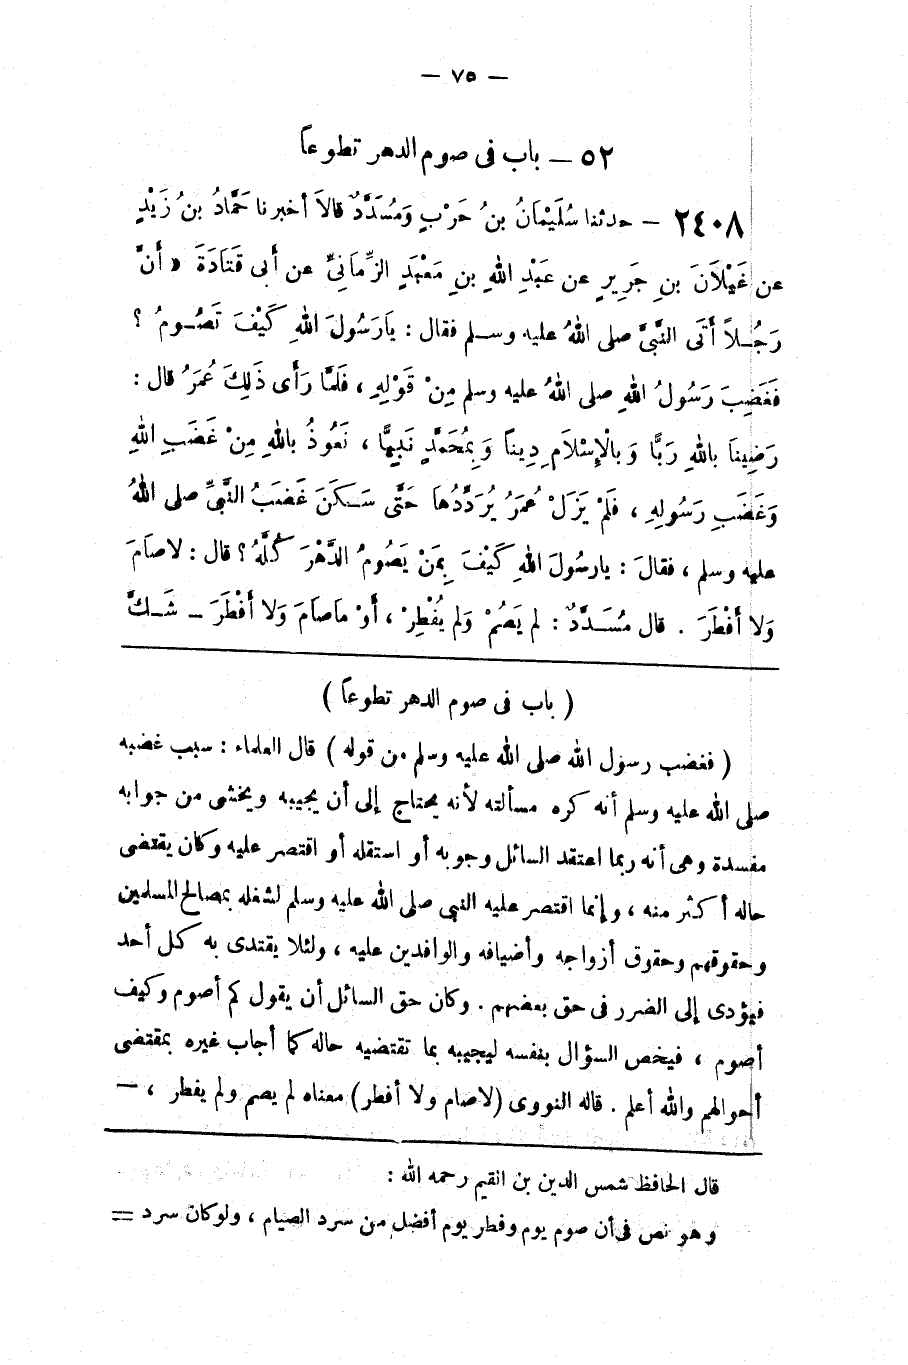 — ٧٥ —
٥٢ — باب فى صوم الدهر تطوعاً
٢٤٠٨ — حدثنا سُلَيْمَانُ بنُ حَرْبٍ وَمُسَدَّدٌ قالاَ أخبرنا حَمَّادُ بنُ زَيْدٍ
عن غَيْلاَنَ بنِ جَرِيرٍ عن عَبْدِ اللهِ بنِ مَعْبَدٍ الزِّمَانِيِّ عن أَبى قَتَادَةَ « أَنَّ
رَجُلاً أَتَى النَّبِيَّ صلى اللهُ عليه وسلم فقال : يَارَسُولَ اللهِ كَيْفَ تَصُومُ ؟
فَغَضِبَ رَسُولُ اللهِ صلى اللهُ عليه وسلم مِنْ قَوْلِهِ ، فَلَمَّا رَأَى ذَلِكَ عُمَرُ قال :
رَضِينَا باللهِ رَبًّا وَبالْإِسْلاَمِ دِيناً وَبِمُحَمَّدٍ نَبِيًّا ، نَعُوذُ باللهِ مِنْ غَضَبِ اللهِ
وَغَضَبِ رَسُولِهِ ، فَلَمْ يَزَلْ عُمَرُ يُرَدِّدُهَا حَتَّى سَكَنَ غَضَبُ النَّبِيِّ صلى اللهُ
عليه وسلم ، فقالَ : يارسُولَ اللهِ كَيْفَ بِمَنْ يَصُومُ الدَّهْرَ كُلَّهُ ؟ قال : لاصَامَ
وَلا أَفْطَرَ . قال مُسَدَّدٌ : لم يَصُمْ وَلم يُفْطِرْ ، أَوْ مَاصَامَ وَلا أَفْطَرَ — شَكَّ
( باب فى صوم الدهر تطوعاً )
( فغضب رسول الله صلى الله عليه وسلم من قوله ) قال العلماء : سبب غضبه
صلى الله عليه وسلم أنه كره مسألته لأنه يحتاج إلى أن يجيبه ويخشى من جوابه
مفسدة وهى أنه ربما اعتقد السائل وجوبه أو استقله أو اقتصر عليه وكان يقتضى
حاله أكثر منه ، وإنما اقتصر عليه النبى صلى الله عليه وسلم لشغله بمصالح المسلمين
وحقوقهم وحقوق أزواجه وأضيافه والوافدين عليه ، ولئلا يقتدى به كل أحد
فيؤدى إلى الضرر فى حق بعضهم . وكان حق السائل أن يقول كم أصوم وكيف
أصوم ، فيخص السؤال بنفسه ليجيبه بما تقتضيه حاله كما أجاب غيره بمقتضى
أحوالهم والله أعلم . قاله النووى (لاصام ولا أفطر) معناه لم يصم ولم يفطر ، —
قال الحافظ شمس الدين بن القيم رحمه الله :
وهو نص فى أن صوم يوم وفطر يوم أفضل من سرد الصيام ، ولوكان سرد =